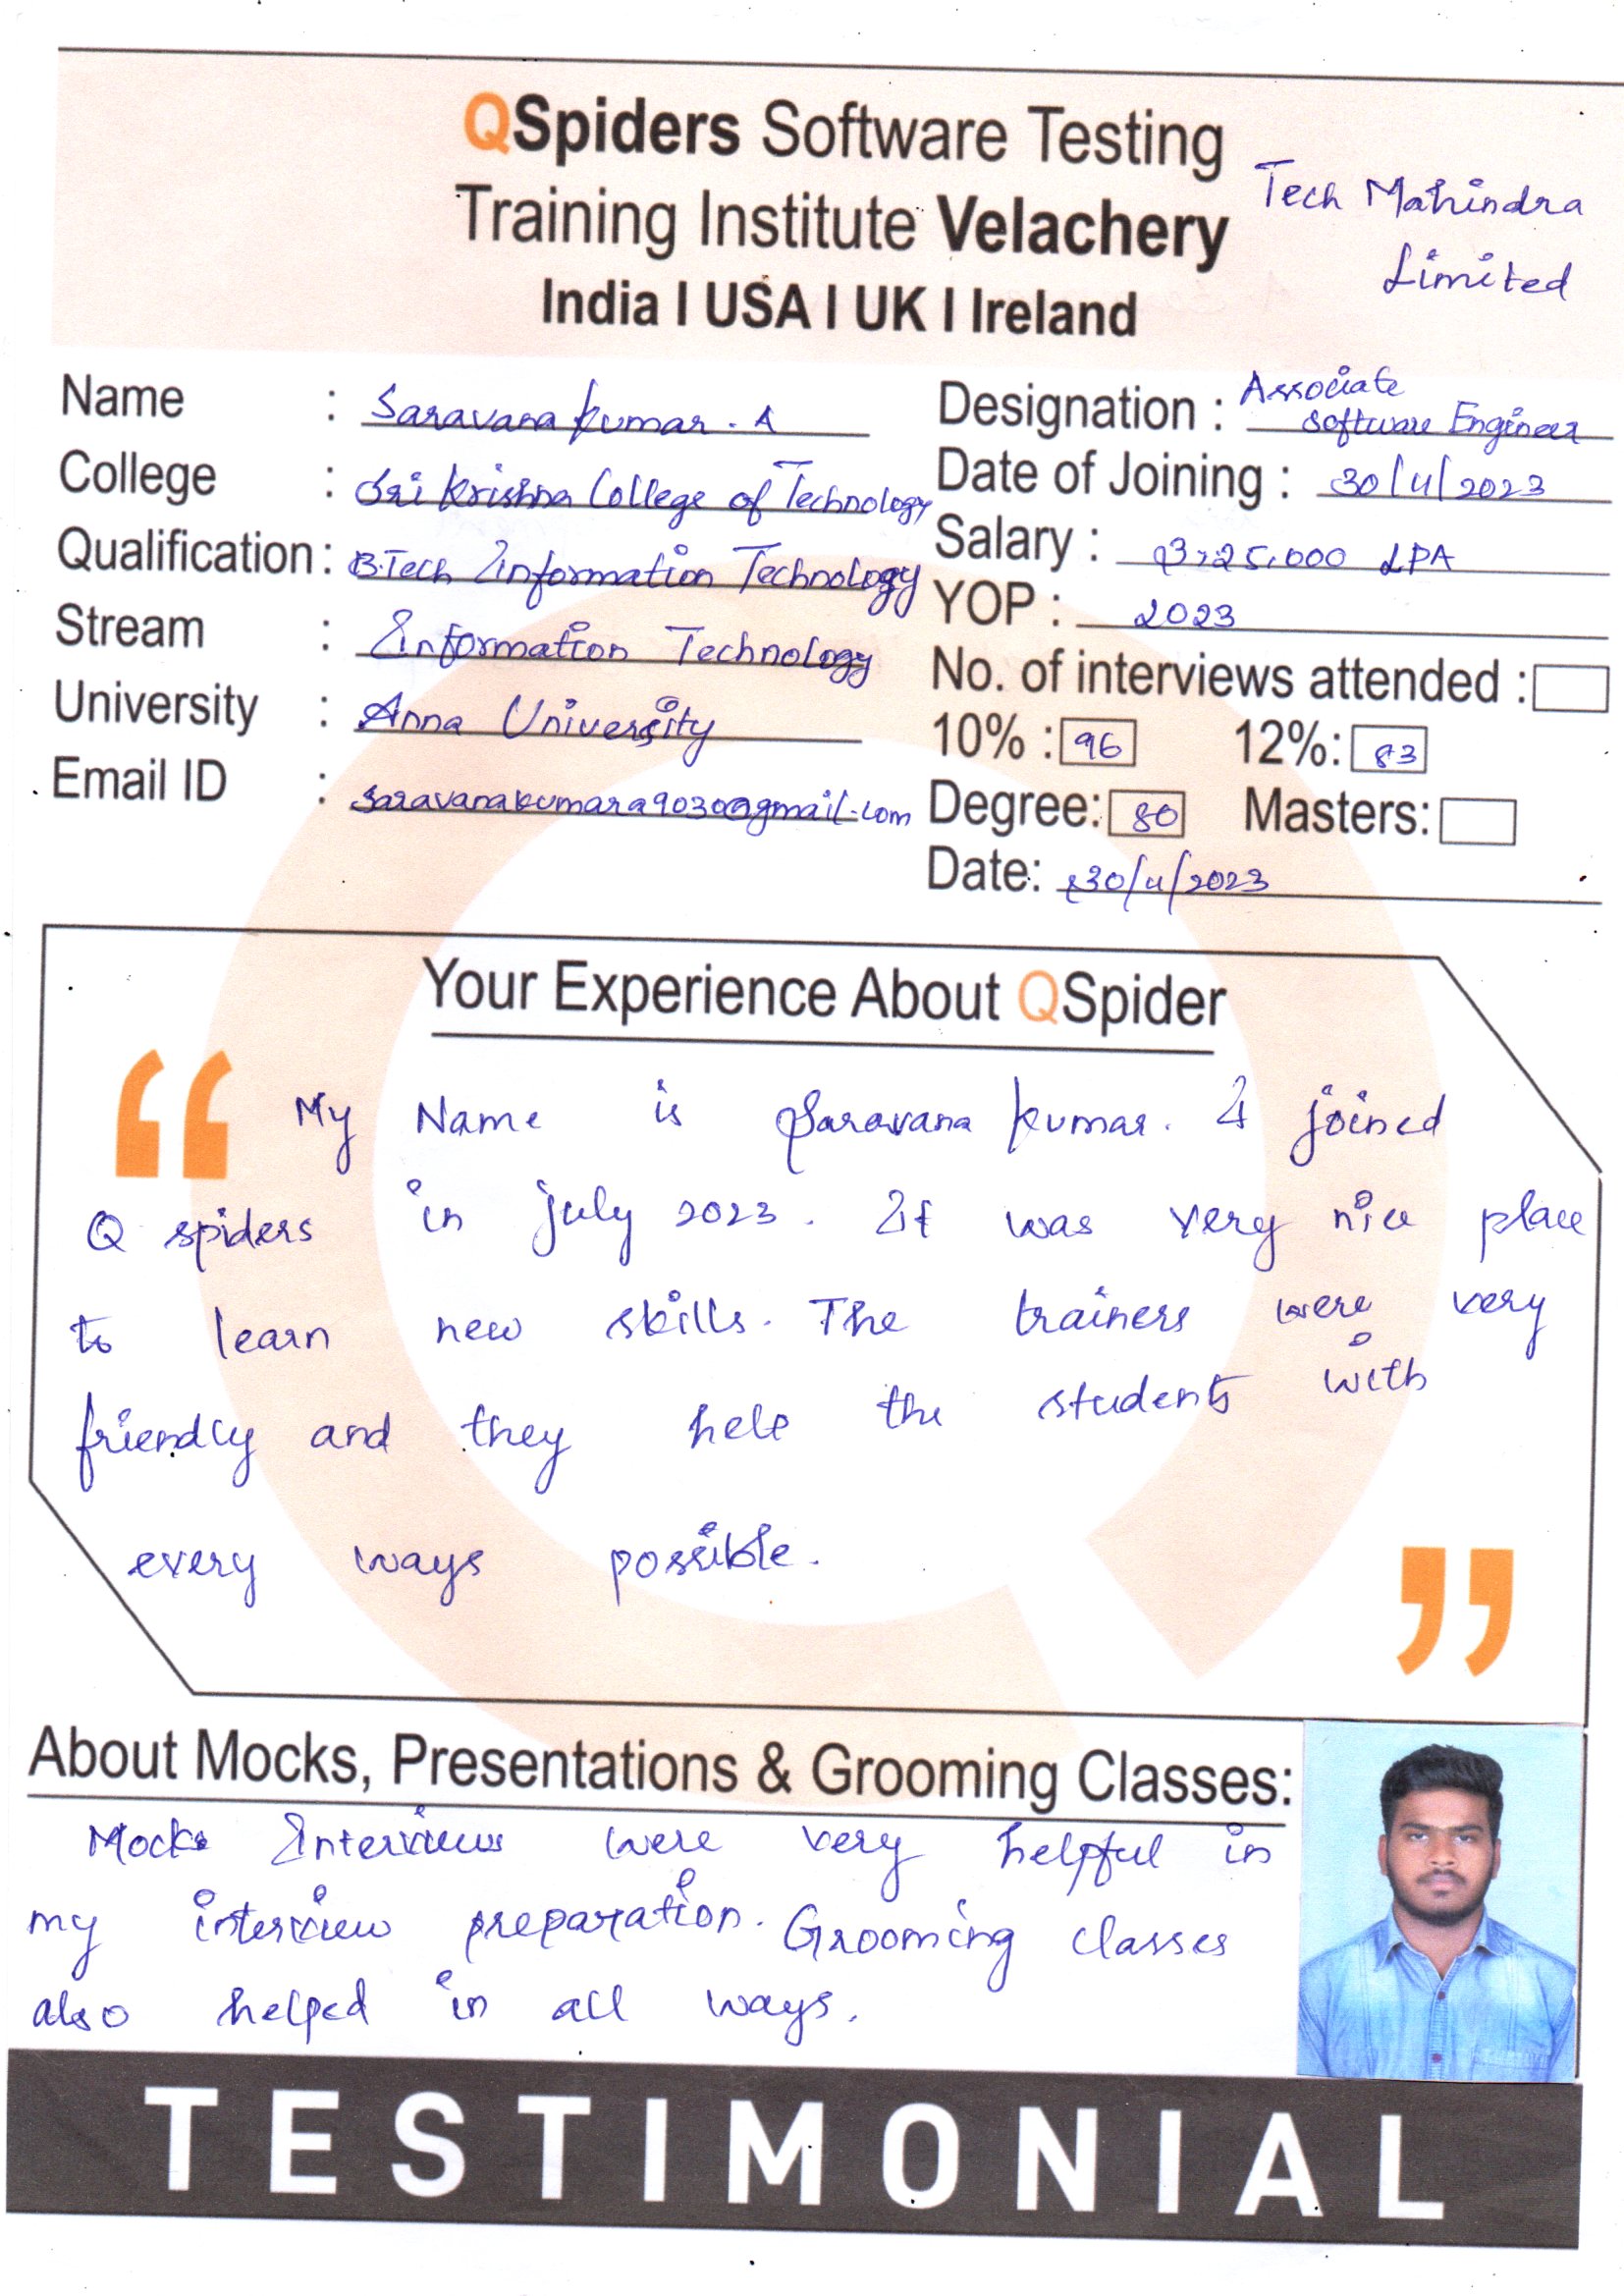 QSpiders Software Testing
Training Institute Velachery
India I USA I UK I Ireland
Tech Mahindra
Limited
Name : Saravana kumar . A
College : Sri Krishna College of Technology
Qualification : B.Tech Information Technology
Stream : Information Technology
University : Anna University
Email ID : saravanakumara9030@gmail.com
Designation : Associate
Software Engineer
Date of Joining : 30/11/2023
Salary : 3,25,000 LPA
YOP : 2023
No. of interviews attended :
10% : 96 12%: 83
Degree: 80 Masters:
Date: 30/11/2023
Your Experience About QSpider
My Name is Saravana kumar. I joined
Q spiders in july 2023. It was very nice place
to learn new skills. The trainers were very
friendly and they help the students with
every ways possible.
About Mocks, Presentations & Grooming Classes:
Mocks Interviews were very helpful in
my interview preparation. Grooming classes
also helped in all ways.
TESTIMONIAL